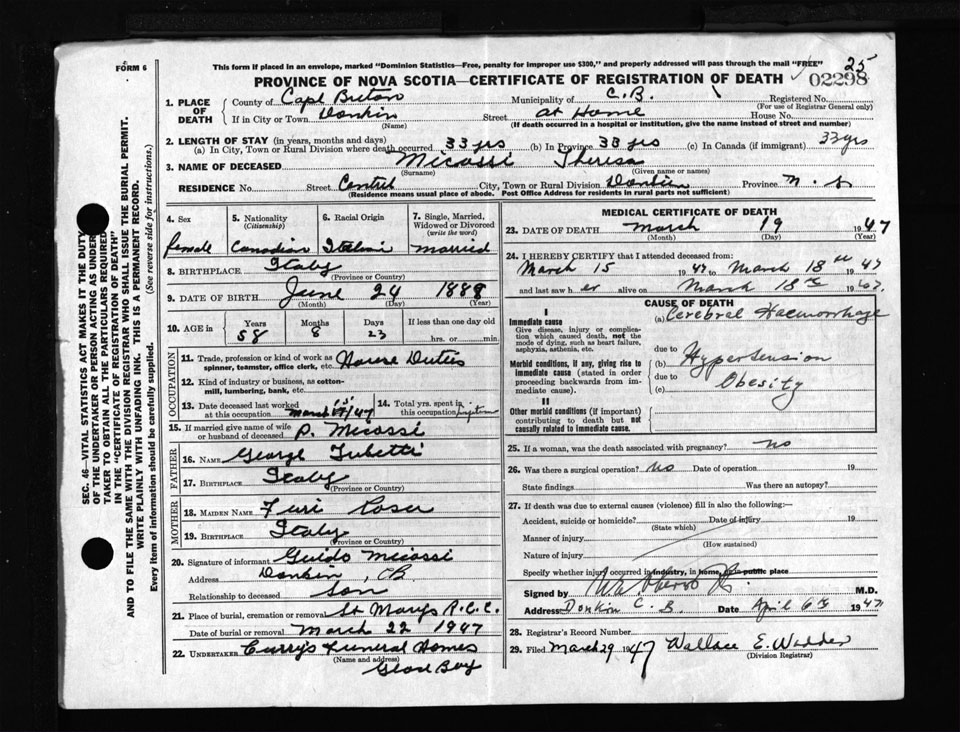 FORM 6
This form if placed in an envelope, marked "Dominion Statistics—Free, penalty for improper use $300," and properly addressed will pass through the mail "FREE" 25
PROVINCE OF NOVA SCOTIA—CERTIFICATE OF REGISTRATION OF DEATH 02298
1. PLACE OF DEATH County of Cape Breton Municipality of C.B. Registered No.
(For use of Registrar General only)
If in City or Town Donkin Street at Home House No.
(Name) (If death occurred in a hospital or institution, give the name instead of street and number)
2. LENGTH OF STAY (in years, months and days)
(a) In City, Town or Rural Division where death occurred 33 yrs (b) In Province 33 yrs (c) In Canada (if immigrant) 33 yrs
3. NAME OF DECEASED Micossi Theresa
(Surname) (Given name or names)
RESIDENCE No. Street City, Town or Rural Division Donkin Province N.S.
(Residence means usual place of abode. Post Office Address for residents in rural parts not sufficient)
4. Sex 5. Nationality (Citizenship) 6. Racial Origin 7. Single, Married, Widowed or Divorced (write the word)
female Canadian married
8. BIRTHPLACE Italy
(Province or Country)
9. DATE OF BIRTH June 24 1888
(Month) (Day) (Year)
10. AGE in Years Months Days If less than one day old
58 8 23 hrs. or min.
OCCUPATION
11. Trade, profession or kind of work as spinner, teamster, office clerk, etc. House Duties
12. Kind of industry or business, as cotton-mill, lumbering, bank, etc.
13. Date deceased last worked at this occupation March 15/47 14. Total yrs. spent in this occupation
15. If married give name of wife or husband of deceased P. Micossi
FATHER
16. NAME George
17. BIRTHPLACE Italy
(Province or Country)
MOTHER
18. MAIDEN NAME
19. BIRTHPLACE Italy
(Province or Country)
20. Signature of informant Guido Micossi
Address Donkin, CB
Relationship to deceased Son
21. Place of burial, cremation or removal St Marys R.C.C.
Date of burial or removal March 22 1947
22. UNDERTAKER Curry's Funeral Homes
(Name and address)
Glace Bay
MEDICAL CERTIFICATE OF DEATH
23. DATE OF DEATH March 19 1947
(Month) (Day) (Year)
24. I HEREBY CERTIFY that I attended deceased from:
March 15 1947 to March 18th 1947
and last saw her alive on March 18th 1947.
CAUSE OF DEATH
I
Immediate cause (a) Cerebral Haemorrhage
Give disease, injury or complication which caused death, not the mode of dying, such as heart failure, asphyxia, asthenia, etc.
due to
Morbid conditions, if any, giving rise to immediate cause (stated in order proceeding backwards from immediate cause). (b) Hypertension
due to
(c) Obesity
II
Other morbid conditions (if important) contributing to death but not causally related to immediate cause.
25. If a woman, was the death associated with pregnancy? no
26. Was there a surgical operation? No Date of operation 19
State findings Was there an autopsy?
27. If death was due to external causes (violence) fill in also the following:—
Accident, suicide or homicide? Date of injury 19
(State which)
Manner of injury
(How sustained)
Nature of injury
Specify whether injury occurred in industry, in home, in public place
Signed by M.D.
Address Donkin C.B. Date April 6th 1947
28. Registrar's Record Number
29. Filed March 29 1947 Wallace E.
(Division Registrar)
SEC. 46—VITAL STATISTICS ACT MAKES IT THE DUTY
OF THE UNDERTAKER OR PERSON ACTING AS UNDERTAKER TO OBTAIN ALL THE PARTICULARS REQUIRED
IN THE "CERTIFICATE OF REGISTRATION OF DEATH"
AND TO FILE THE SAME WITH THE DIVISION REGISTRAR WHO SHALL ISSUE THE BURIAL PERMIT.
WRITE PLAINLY WITH UNFADING INK. THIS IS A PERMANENT RECORD.
Every item of information should be carefully supplied. (See reverse side for instructions.)